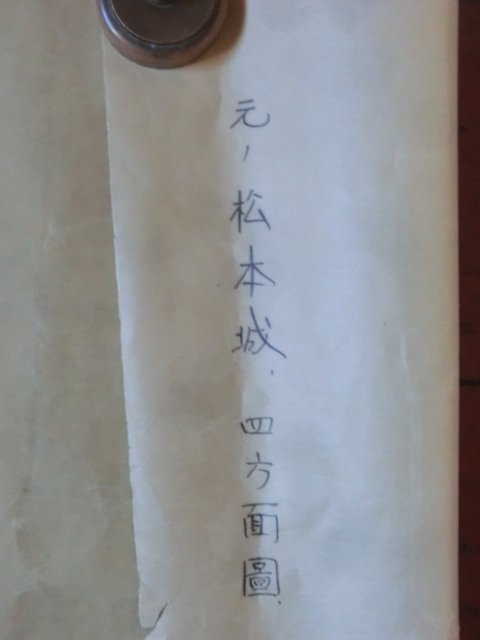 元ノ松本城.四方面圖.